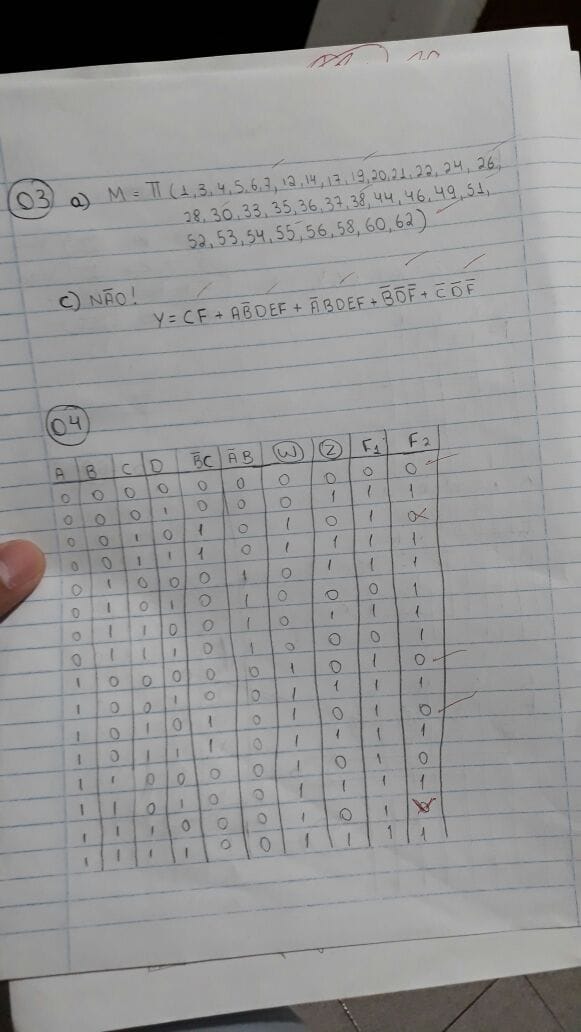 03 a) M = Π (1,3,4,5,6,7,12,14,17,19,20,21,22,24,26,
28,30,33,35,36,37,38,44,46,49,51,
52,53,54,55,56,58,60,62)
c) NÃO!
Y = CF + AB̅DEF + A̅BDEF + B̅D̅F̅ + C̅D̅F̅
04
A B C D B̅C A̅B W Z F1 F2
0 0 0 0 0 0 0 0 0 0
0 0 0 1 0 0 0 1 1 1
0 0 1 0 1 0 1 0 1 0
0 0 1 1 1 0 1 1 1 1
0 1 0 0 0 1 0 1 1 1
0 1 0 1 0 1 0 0 0 1
0 1 1 0 0 1 0 1 1 1
0 1 1 1 0 1 0 0 0 1
1 0 0 0 0 0 1 0 1 0
1 0 0 1 0 0 1 1 1 1
1 0 1 0 1 0 1 0 1 0
1 0 1 1 1 0 1 1 1 1
1 1 0 0 0 0 1 0 1 0
1 1 0 1 0 0 1 1 1 1
1 1 1 0 0 0 1 0 1 0
1 1 1 1 0 0 1 1 1 1